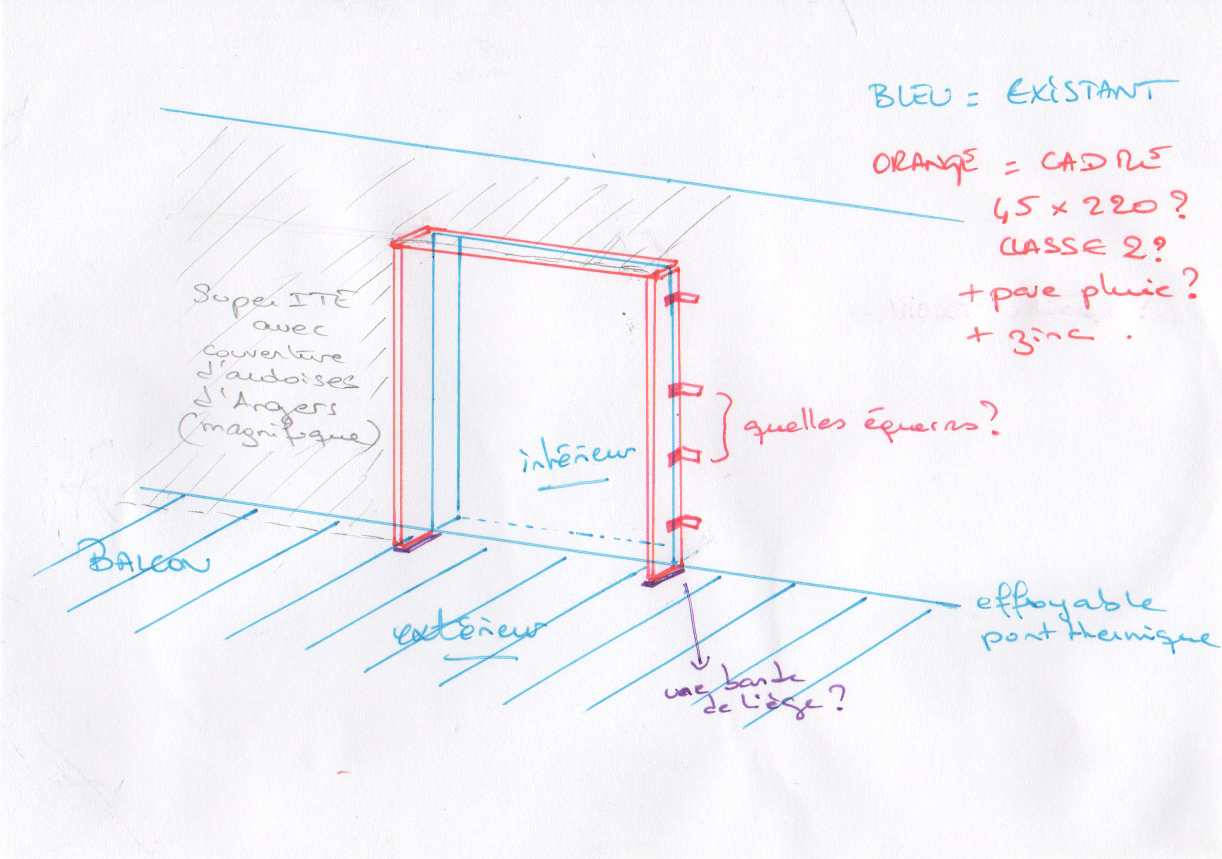 BLEU = EXISTANT
ORANGE = CADRE
45 x 220 ?
CLASSE 2 ?
+ pare pluie ?
+ zinc .
Super ITE
avec
couverture
d'ardoises
d'Angers
(magnifique)
quelles équerres ?
intérieur
BALCON
extérieur
effroyable
pont thermique
une bande
de liège ?